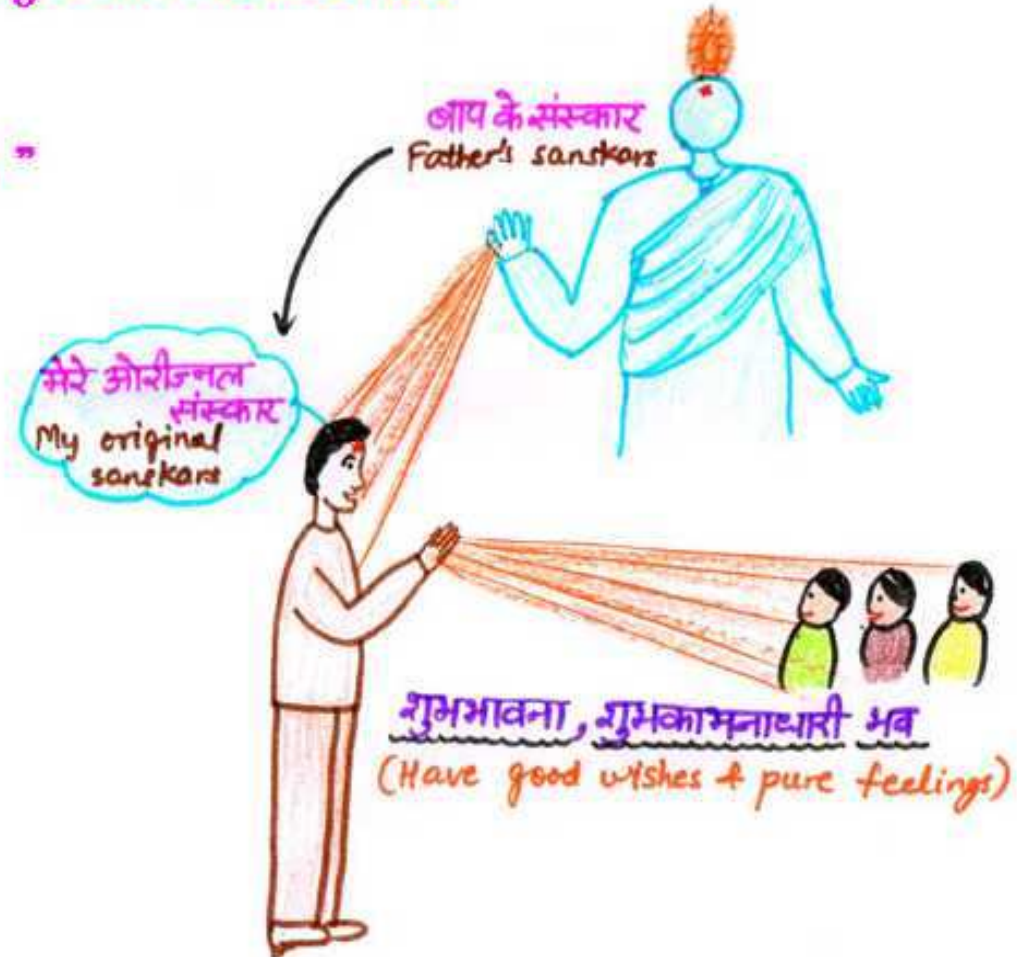 बाप के संस्कार
Father's sanskars
"
मेरे ओरीज्नल
संस्कार
My original
sanskars
शुभभावना, शुभकामनाधारी भव
(Have good wishes & pure feelings)